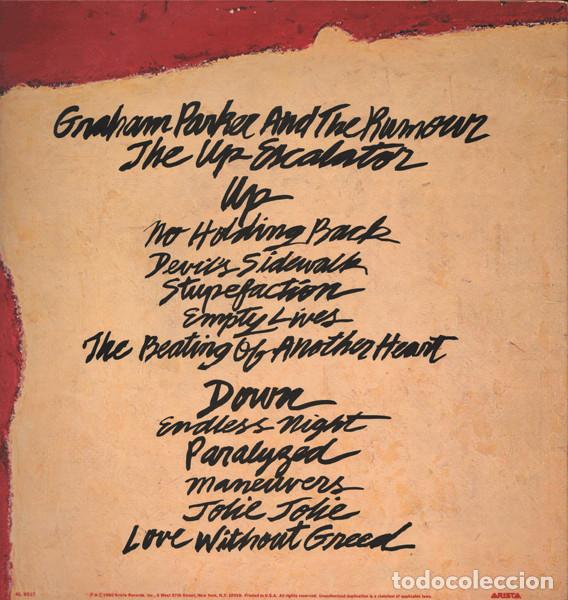 Graham Parker And The Rumour
The Up Escalator
Up
No Holding Back
Devil's Sidewalk
Stupefaction
Empty Lives
The Beating Of Another Heart
Down
Endless Night
Paralyzed
Maneuvers
Jolie Jolie
Love Without Greed
AL 9517
℗ & © 1980 Arista Records, Inc., 6 West 57th Street, New York, N.Y. 10019. Printed in U.S.A. All rights reserved. Unauthorized duplication is a violation of applicable laws.
ARISTA
todocoleccion